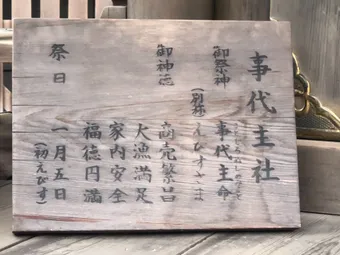 事代主社
御祭神 事代主命
(別称 えびすさま)
御神徳 商売繁昌
大漁満足
家内安全
福徳円満
祭日 一月五日
(初えびす)